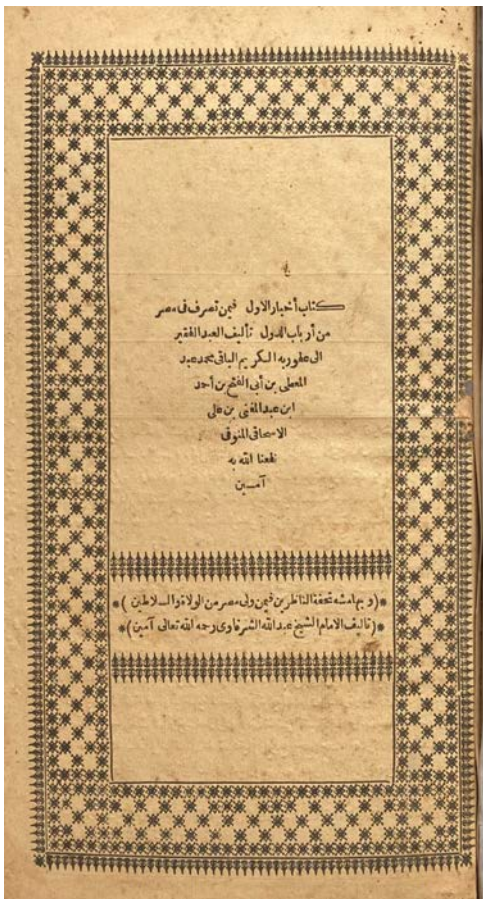 كتاب أخبار الاول فيمن تصرف فى مصر
من أرباب الدول تأليف العبد الفقير
الى عفو ربه الكريم الباقى محمد عبد
المعطى بن أبى الفتح بن أحمد
ابن عبد المغنى بن على
الاسحاقى المنوفى
نفعنا الله به
آمـين
*(وبهامشه تحفة الناظرين فيمن ولى مصر من الولاة والسلاطين)*
*(تاليف الامام الشيخ عبد الله الشرقاوى رحمه الله تعالى آمين)*